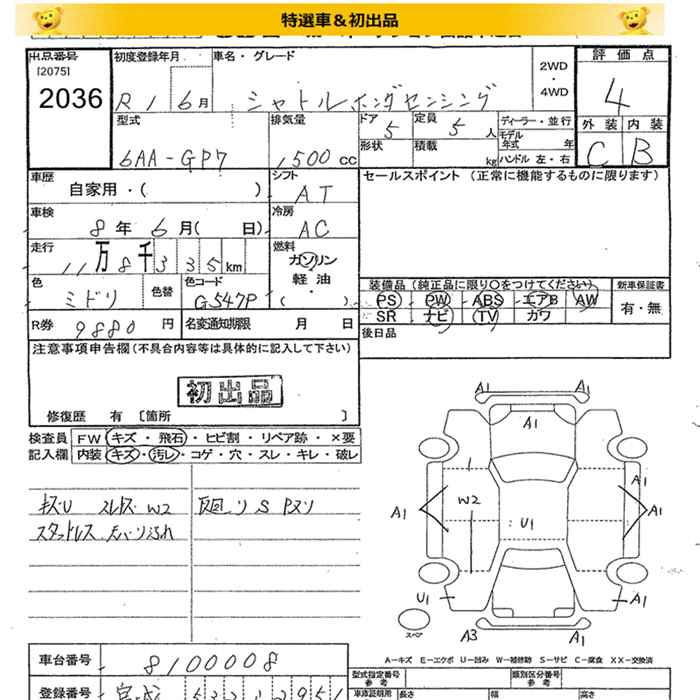 特選車＆初出品
出品番号 初度登録年月 車名・グレード 2WD ・ 4WD 評価点
[2075]
2036 R1 6月 シャトルホンダセンシング 4
型式 排気量 ドア 定員 ディーラー・並行 外装 内装
6AA-GP7 1,500 cc 5 5人 モデル年式 年 C B
形状 積載 kg ハンドル 左・右
車歴 シフト セールスポイント（正常に機能するものに限ります）
自家用・( ) AT
車検 冷房
8年 6月( 日) AC
走行 燃料
11万8千335km ガソリン 軽油・( )
色 色替 色コード 装備品（純正品に限り○をつけてください） 新車保証書
ミドリ G547P PS PW ABS エアB AW 有・無
SR ナビ TV カワ
R券 9880円 名変通知期限 月 日 後日品
注意事項申告欄（不具合内容等は具体的に記入して下さい）
初出品
修復歴 有 〔箇所 〕
検査員 FW キズ・飛石・ヒビ割・リペア跡・×要
記入欄 内装 キズ・汚レ・コゲ・穴・スレ・キレ・破レ
キズU W2
A1 A1
A1
A1
W2
A1 A1
U1
U1 A1
A3 A1
スペア
A－キズ E－エクボ U－凹み W－補修跡 S－サビ C－腐食 XX－交換済
車台番号 8100008
型式指定番号 参考 類別区分番号 参考
登録番号 長さ 幅 高さ